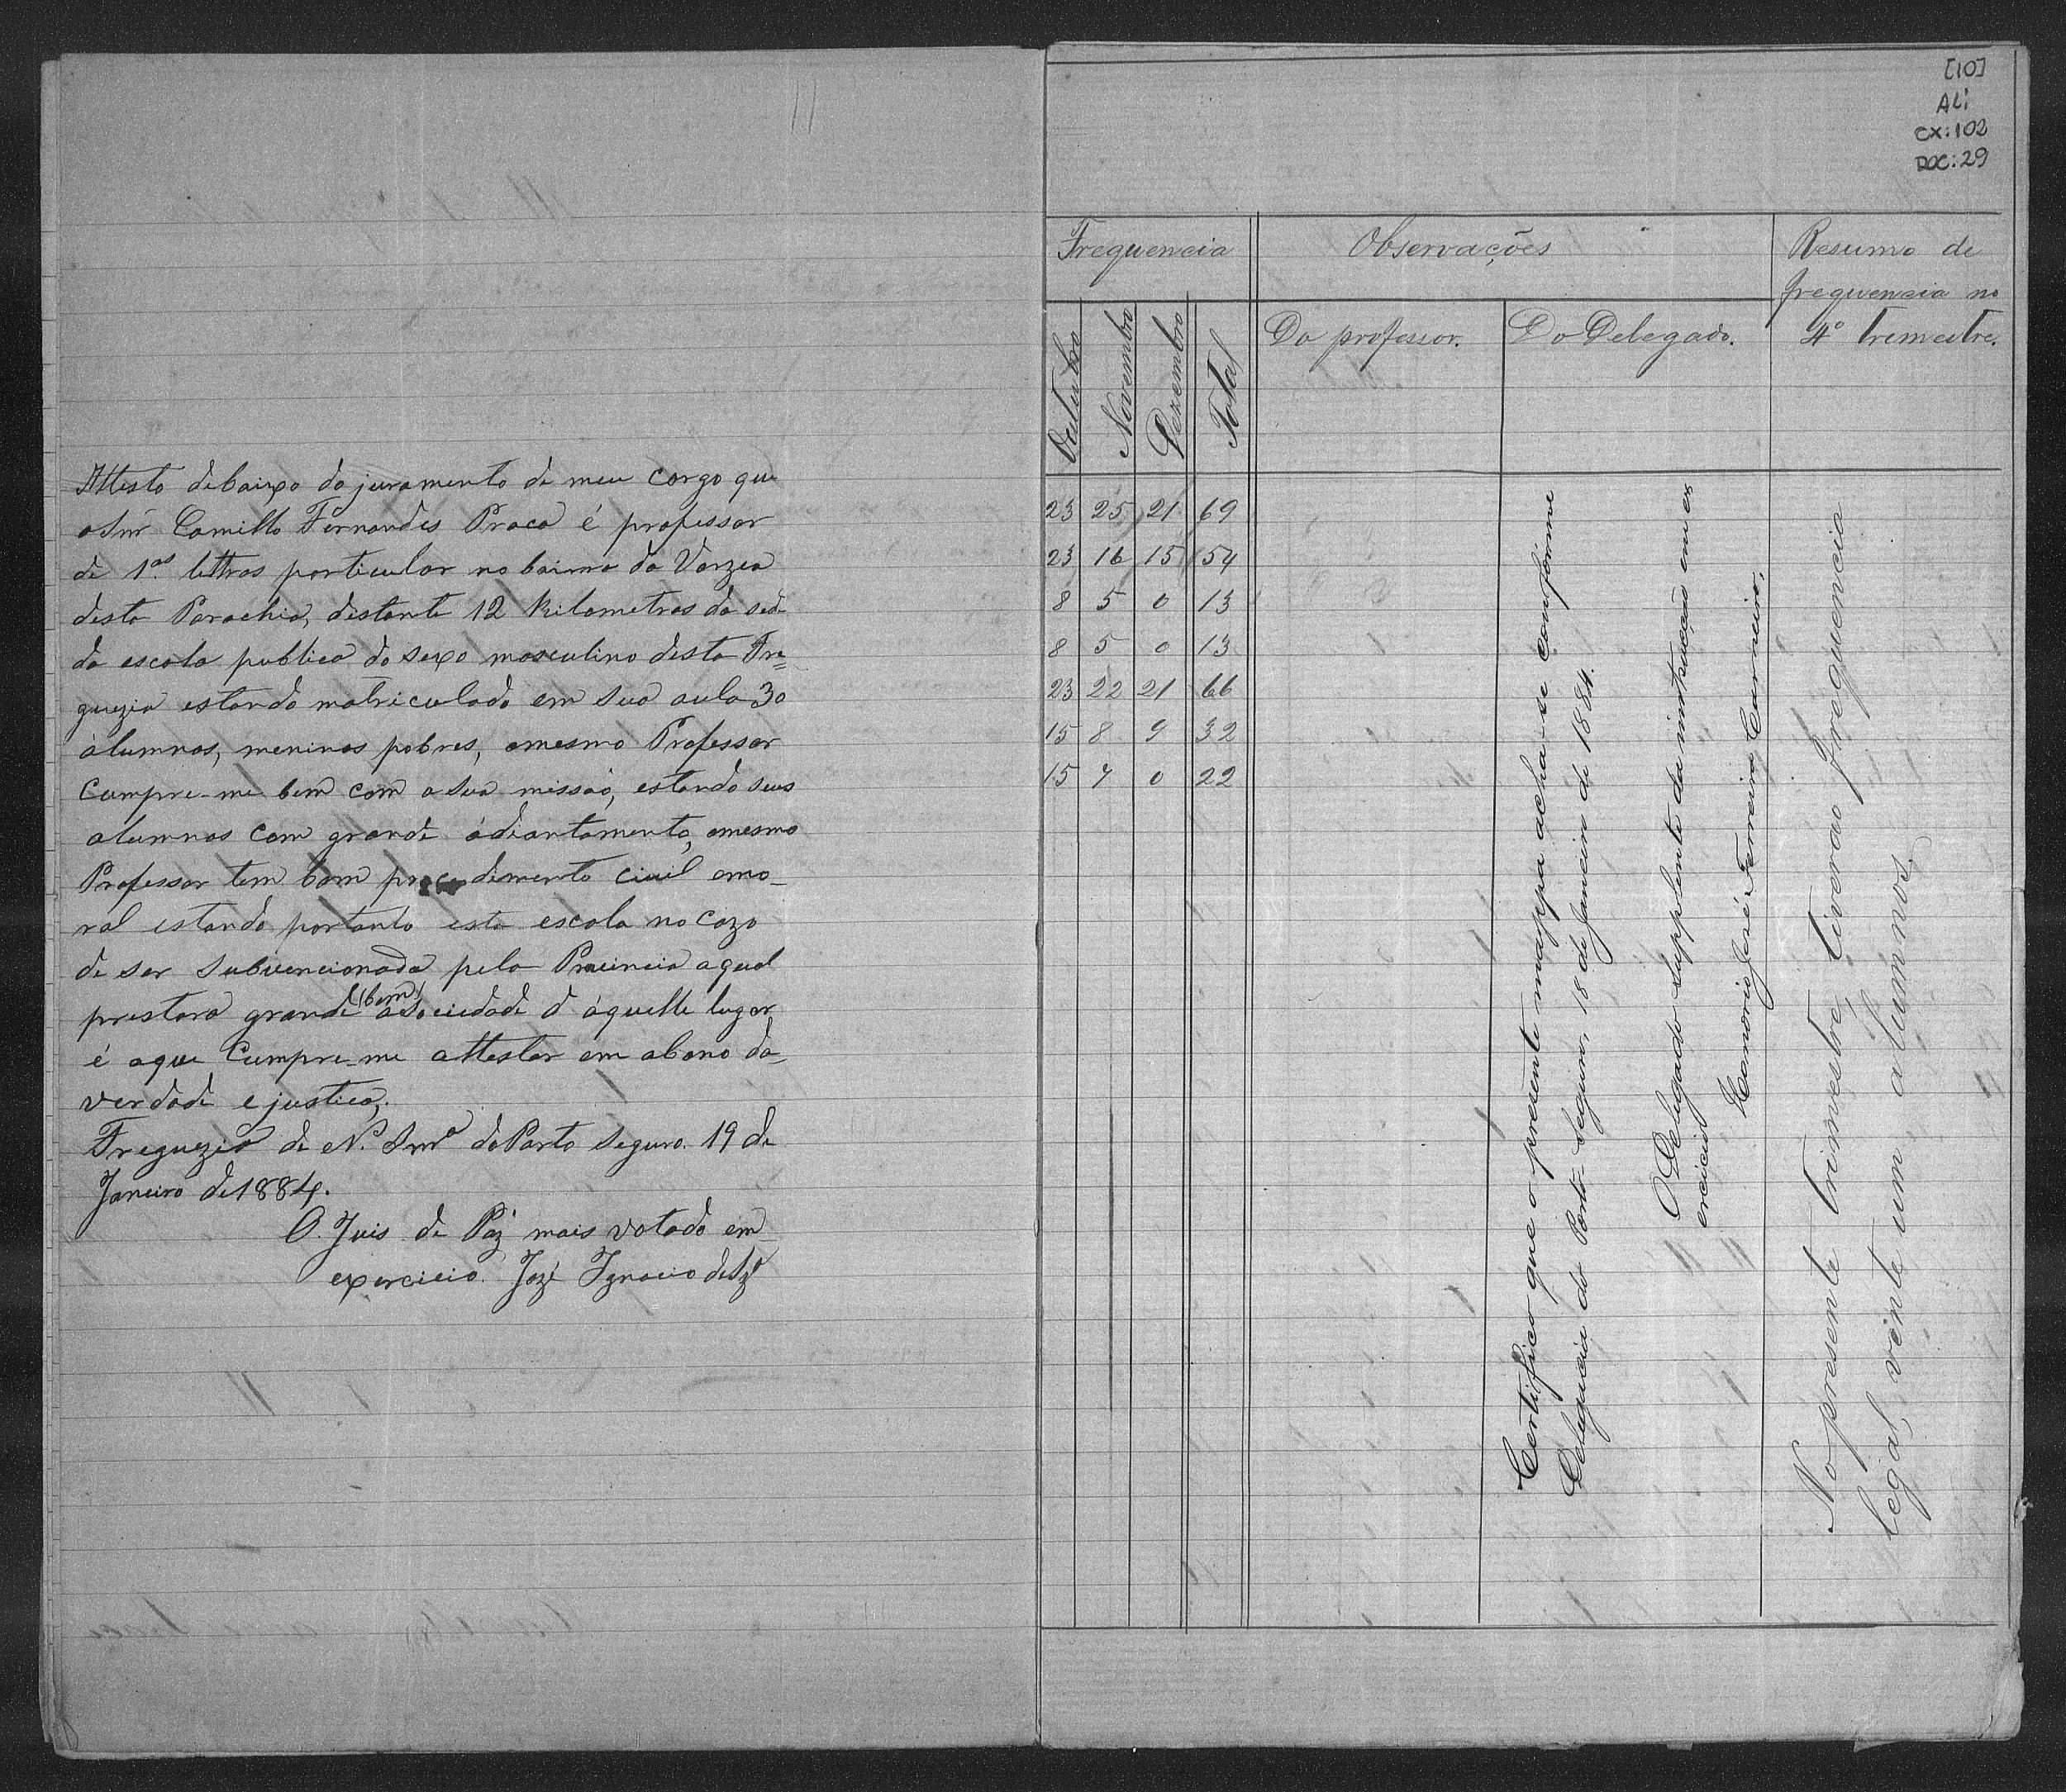 11
Attesto debaixo do juramento de meu cargo que
o Snr Camillo Fernandes Praca é professor
de 1as. lettras particular no bairro da Varzea
desta Parochia, distante 12 kilometros da sede
da escola publica do sexo masculino desta Fre=
guezia estando matriculado em sua aula 30
alumnos, meninos pobres, omesmo Professor
Cumpre-me bem com a sua missaõ, estando seus
alumnos com grande ádiantamento, omesmo
Professor tem bom procedimento civil emo_
ral estando portanto esta escola no cazo
de ser subvencionada pela Provincia aqual
prestara grande (bem) asociedade d'áquelle lugar
é oque Cumpre-me attestar em abono da_
verdade ejustiça,
Freguezia de N. Snrª do Porto Seguro. 19 de
Janeiro de 1884.
O. Juis de Páz mais votado em_
exercicio. Jozé Ignacio
[10]
ALi
CX:102
DOC:29
Frequencia
Observações
Resumo de
frequencia no
4º trimestre.
Do professor.
Do Delegado.
Outubro
Novembro
Dezembro
Total
23 25 21 69
23 16 15 54
8 5 0 13
8 5 0 13
23 22 21 66
15 8 9 32
15 7 0 22
Certifico que o presente mappa acha-se conforme
Delegacia do Porto-Seguro, 18 de Janeiro de 1884.
O Delegado supplente da instrucção em ex
ercicio
Honorio José Ferreira Carneiro.
No presente trimestre, tiverao frequencia
legal, vinte um alumnos.